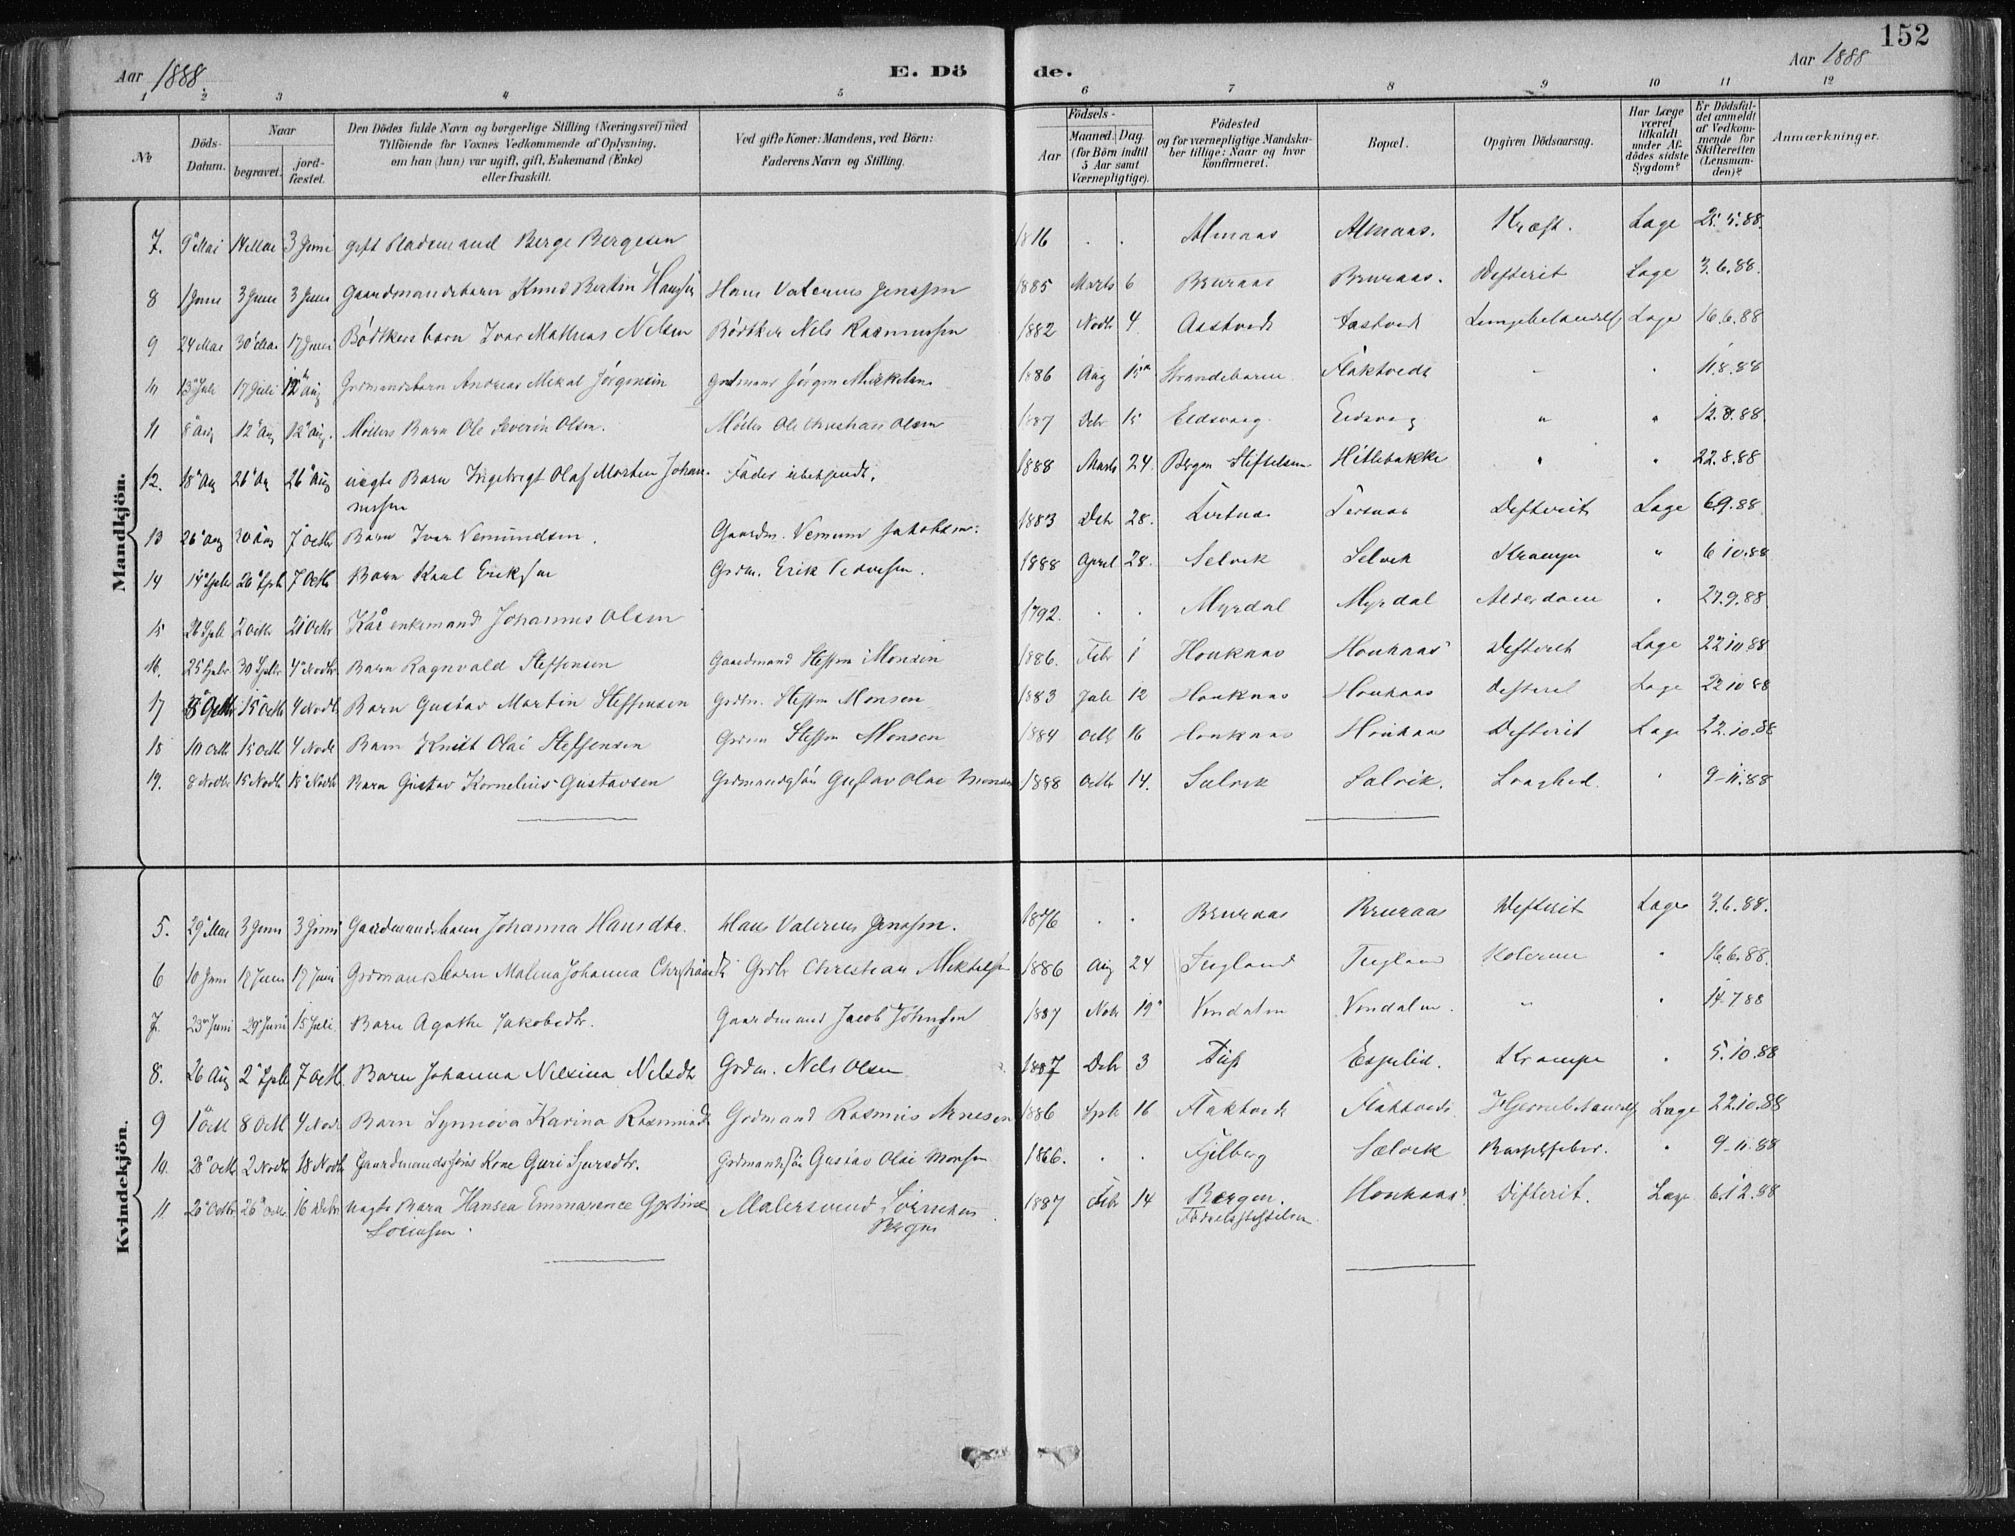 152
Aar 1888. E. Dö de. Aar 1888
1 2 3 4 5 6 7 8 9 10 11 12
№ Döds-Datum. Naar begravet. jord-fæstet. Den Dödes fulde Navn og borgerlige Stilling (Næringsvei) med Tilföiende for Voxnes Vedkommende af Oplysning, om han (hun) var ugift, gift, Enkemand (Enke) eller fraskilt. Ved gifte Koner: Mandens, ved Börn: Faderens Navn og Stilling. Födsels- Aar Maaned. Dag. (for Börn indtil 5 Aar samt Værnepligtige). Födested og for værnepligtige Mandskaber tillige: Naar og hvor konfirmeret. Bopæl. Opgiven Dödsaarsag. Har Læge været tilkaldt under Afdödes sidste Sygdom? Er Dödsfaldet anmeldt af Vedkommende for Skifteretten (Lensmanden)? Anmærkninger.
Mandkjön.
7. 9 Mai 14 Mai 3 Juni gift Berge Bergesen 1816 . . Almaas Almaas. Kræft. Læge 25.5.88.
8 1 Juni 3 Juni 3 Juni Gaardmandsbarn Knud Bertin Hansen Hans Valerius Jenssen 1885 Marts 6 Bruraas Bruraas. Difterit Læge 3.6.88.
9 24 Mai 30 Mai 17 Juni Bødtkersbarn Ivar Mathias Nilsen Bødtker Nils Rasmussen 1882 Novbr 4 Aastvedt Aastvedt Læge 16.6.88
10 13 Juli 17 Juli 12 Aug Grdmandsbarn Andreas Mikal Jørgensen Grdmand Jørgen Mikkelsen 1886 Aug 15 Strandebarm Flaktvedt " " 11.8.88
11 8 Aug 12 Aug 12 Aug. Møllers Barn Ole Severin Olsen. Møller Ole Christian Olsen 1887 Debr 15 Eidsvaag Eidsvaag " " 12.8.88.
12. 18 Aug 26 Aug 26 Aug uægte Barn Ingebrigt Olaf Morten Johan- Fader ubekjendt. 1888 Marts 24. Bergen Stiftelsen " " 22.8.88
nessen
13 26 Aug 30 Aug 7 Octbr Barn Ivar Vemundsen. Gaardm. Vemund Jakobsen. 1883 Debr 28. Tertnæs Tertnæs Difterit Læge 6 9.88
14 14 Septbr 20 Septb 7 Octb Barn Karl Eriksen Grdm. Erik Pedersen. 1888 April 28. Selvik Selvik Krampe " 6 10.88
15 26 Septb 2 Octbr 21 Octbr Kår enkemand Johannes Olsen 1792. . . Myrdal Myrdal Alderdom " 27.9.88.
16. 25 Septbr 30 Septbr 4 Novbr Barn Ragnvald Steffensen Gaardmand Steffen Monsen 1886. Febr 1 Houknæs Houknæs Difterit Læge 22 10.88
17 Octbr 15 Octb 4 Novbr Barn Gustav Martin Steffensen Grdm. Steffen Monsen 1883 Juli 12 Houknæs Houknæs Difterit Læge 22 10 88
18 10 Octb 15 Octb 4 Novbr Barn Knut Olai Steffensen Grdm Steffen Monsen 1884 Octbr 16 Houknæs Houknæs Difterit Læge 22.10.88
19. 8 Novbr 15 Novbr 18 Novbr Barn Gustav Kornelius Gustavsen Grdmandssøn Gustav Olai Monsen 1888 Octbr 14. Sælvik Sælvik. Svaghed. " 9-11.88
Kvindekjön.
5. 29 Mai 3 Juni 3 Juni Gaardmandsbarn Johanna Hansdtr. Hans Valerius Jenssen. 1876 . . Bruraas Bruraas Difterit Læge 3.6.88.
6 10 Juni 17 Juni 17 Juni Grdmandsbarn Malena Johanna Christiansdtr Grdbr Christian Mikkelsen 1886 Aug 24 Tugland Tugland Kolerine " 16.6.88.
7. 23 Juni 29 Juni 15 Juli Barn Agathe Jakobsdtr. Gaardmand Jacob Johnssen 1887 Nobr 19 Vindalen Vindalen. " " 14.7.88
8. 26 Aug 2 Septb 7 Octb Barn Johanna Nilsina Nilsdtr Grdm. Nels Olsen 1887 Debr 3 Espelid. Krampe " 5.10.88
9 1 Octb 8 Octb 4 Novbr Barn Synnøva Karina Rasmusdtr Grdmand Rasmus Arnesen 1886 Septb 16 Flaktvedt Flaktvedt Hjernebetændelse Læge 22.10.88
10. 28 Octb 2 Novbr 18 Novbr Gaardmandssøns Kone Guri Sjursdtr. Grdmandssøn Gustav Olai Monsen 1866. . . Fjelberg Sælvik Barselfeber. " 9-11.88
11. 20 Octbr 26 Octbr 16 Debr uægte Barn Hansea Emmarence Malersvend Sørensen 1887 Febr 14 Bergen. Houknæs Difterit. Læge 6.12.88
Sørensen. Bergen Fødselsstiftelsen.